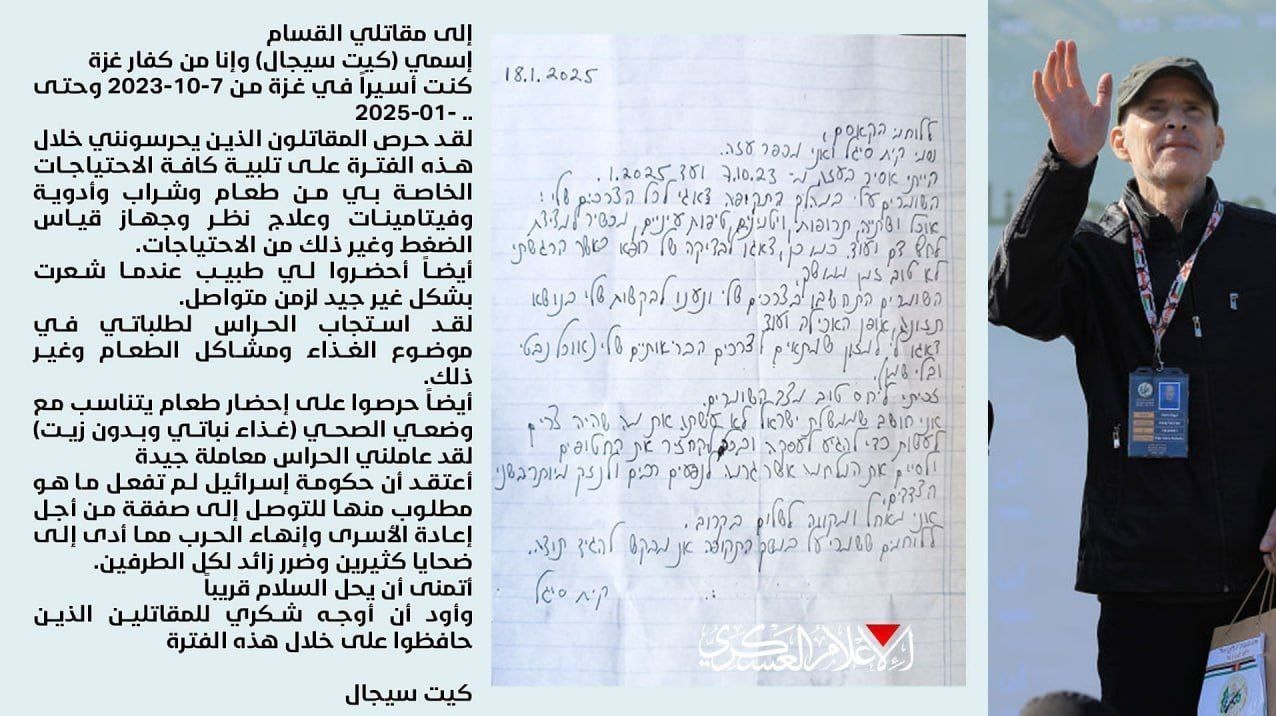 إلى مقاتلي القسام
إسمي (كيت سيجال) وإنا من كفار غزة
كنت أسيراً في غزة من 7-10-2023 وحتى
.. -01-2025
لقد حرص المقاتلون الذين يحرسونني خلال
هذه الفترة على تلبية كافة الاحتياجات
الخاصة بي من طعام وشراب وأدوية
وفيتامينات وعلاج نظر وجهاز قياس
الضغط وغير ذلك من الاحتياجات.
أيضاً أحضروا لي طبيب عندما شعرت
بشكل غير جيد لزمن متواصل.
لقد استجاب الحراس لطلباتي في
موضوع الغذاء ومشاكل الطعام وغير
ذلك.
أيضاً حرصوا على إحضار طعام يتناسب مع
وضعي الصحي (غذاء نباتي وبدون زيت)
لقد عاملني الحراس معاملة جيدة
أعتقد أن حكومة إسرائيل لم تفعل ما هو
مطلوب منها للتوصل إلى صفقة من أجل
إعادة الأسرى وإنهاء الحرب مما أدى إلى
ضحايا كثيرين وضرر زائد لكل الطرفين.
أتمنى أن يحل السلام قريباً
وأود أن أوجه شكري للمقاتلين الذين
حافظوا على خلال هذه الفترة
كيت سيجال
18.1.2025
ללוחמי הקאסם,
שמי קית סיגל ואני מכפר עזה.
הייתי אסיר בעזה מ- 7.10.23 ועד .1.2025
השומרים עלי במהלך התקופה דאגו לכל הצרכים שלי:
אוכל ושתיה, תרופות, ויטמינים, טיפות עיניים, מכשיר למדידת
לחץ דם ועוד. כמו כן, דאגו לבדיקה של רופא כאשר הרגשתי
לא טוב זמן ממושך.
השומרים התחשבו בצרכים שלי ונענו לבקשות שלי בנושא
תזונה, אופן האכילה ועוד
דאגו לי למזון שמתאים לצרכים הבריאותיים שלי (אוכל נבטי
ובלי שמן)
זכיתי ליחס טוב מצד השומרים.
אני חושב שממשלת ישראל לא עשתה את מה שהיה צריך
לעשות כדי להגיע לעסקה להחזיר את החטופים
ולסיים את המלחמה אשר גרמה לנפגעים רבים ולנזק מיותר בשני
הצדדים.
אני מאחל ומקווה לשלום בקרוב.
ללוחמים ששמרו עלי במשך התקופה אני מבקש להגיד תודה.
קית סיגל
الإعلام العسكري